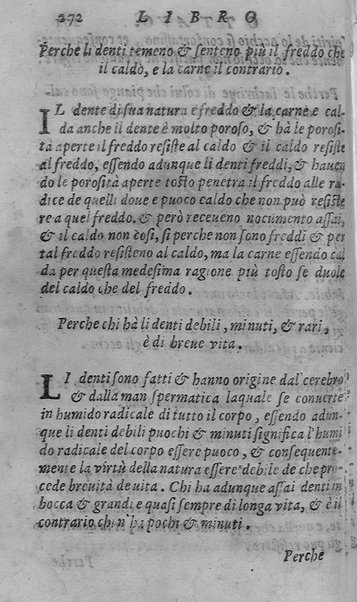 272 LIBRO
Perche li denti temeno & senteno piu il freddo che
il caldo, e la carne il contrario.
IL dente di sua natura e freddo & la carne e cal-
da anche il dente è molto poroso, & hà le porosi-
tà aperte il freddo resiste al caldo & il caldo resiste
al freddo, essendo adunque li denti freddi, & hauen
do le porosità aperte tosto penetra il freddo alle ra-
dice de quelli doue e puoco caldo che non può resiste
re a quel freddo. & però receueno nocumento assai,
& il caldo non cosi, si perche non sono freddi & per
tal freddo resisteno al caldo, ma la carne essendo cal
da per questa medesima ragione più tosto se duole
del caldo che del freddo.
Perche chi hà li denti debili, minuti, & rari,
è di breue vita.
LI denti sono fatti & hanno origine dal cerebro
& dalla man spermatica laquale se conuerte
in humido radicale di tutto il corpo, essendo adun-
que li denti debili puochi & minuti significa l'humi
do radicale del corpo essere puoco, & consequente-
mente la virtù della natura essere debile de che pro-
cede breuità de uita. Chi ha adunque assai denti in
bocca & grandi e quasi sempre di longa vita, & è il
contrario chi n'ha pochi & minuti.
Perche